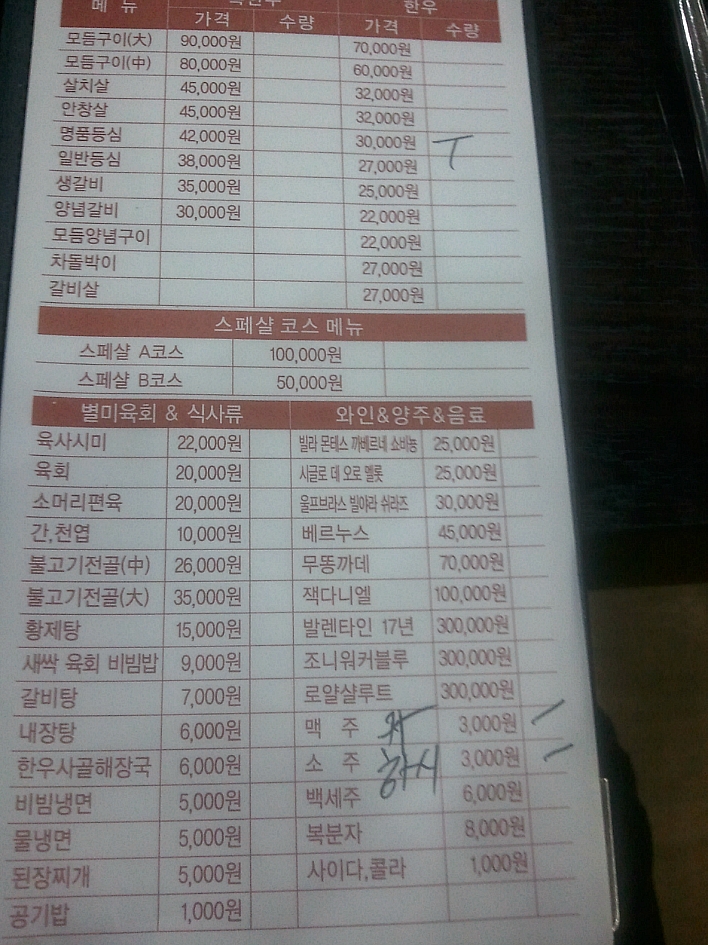 메 뉴 한우
가격 수량 가격 수량
모듬구이(大) 90,000원 70,000원
모듬구이(中) 80,000원 60,000원
살치살 45,000원 32,000원
안창살 45,000원 32,000원
명품등심 42,000원 30,000원 T
일반등심 38,000원 27,000원
생갈비 35,000원 25,000원
양념갈비 30,000원 22,000원
모듬양념구이 22,000원
차돌박이 27,000원
갈비살 27,000원
스페샬 코스 메뉴
스페샬 A코스 100,000원
스페샬 B코스 50,000원
별미육회 & 식사류 와인&양주&음료
육사시미 22,000원 빌라 몬테스 까베르네 소비뇽 25,000원
육회 20,000원 시글로 데 오로 멜롯 25,000원
소머리편육 20,000원 울프브라스 빌야라 쉬라즈 30,000원
간,천엽 10,000원 베르누스 45,000원
불고기전골(中) 26,000원 무똥까데 70,000원
불고기전골(大) 35,000원 잭다니엘 100,000원
황제탕 15,000원 발렌타인 17년 300,000원
새싹 육회 비빔밥 9,000원 조니워커블루 300,000원
갈비탕 7,000원 로얄샬루트 300,000원
내장탕 6,000원 맥 주 카 3,000원
한우사골해장국 6,000원 소 주 3,000원
비빔냉면 5,000원 백세주 6,000원
물냉면 5,000원 복분자 8,000원
된장찌개 5,000원 사이다,콜라 1,000원
공기밥 1,000원